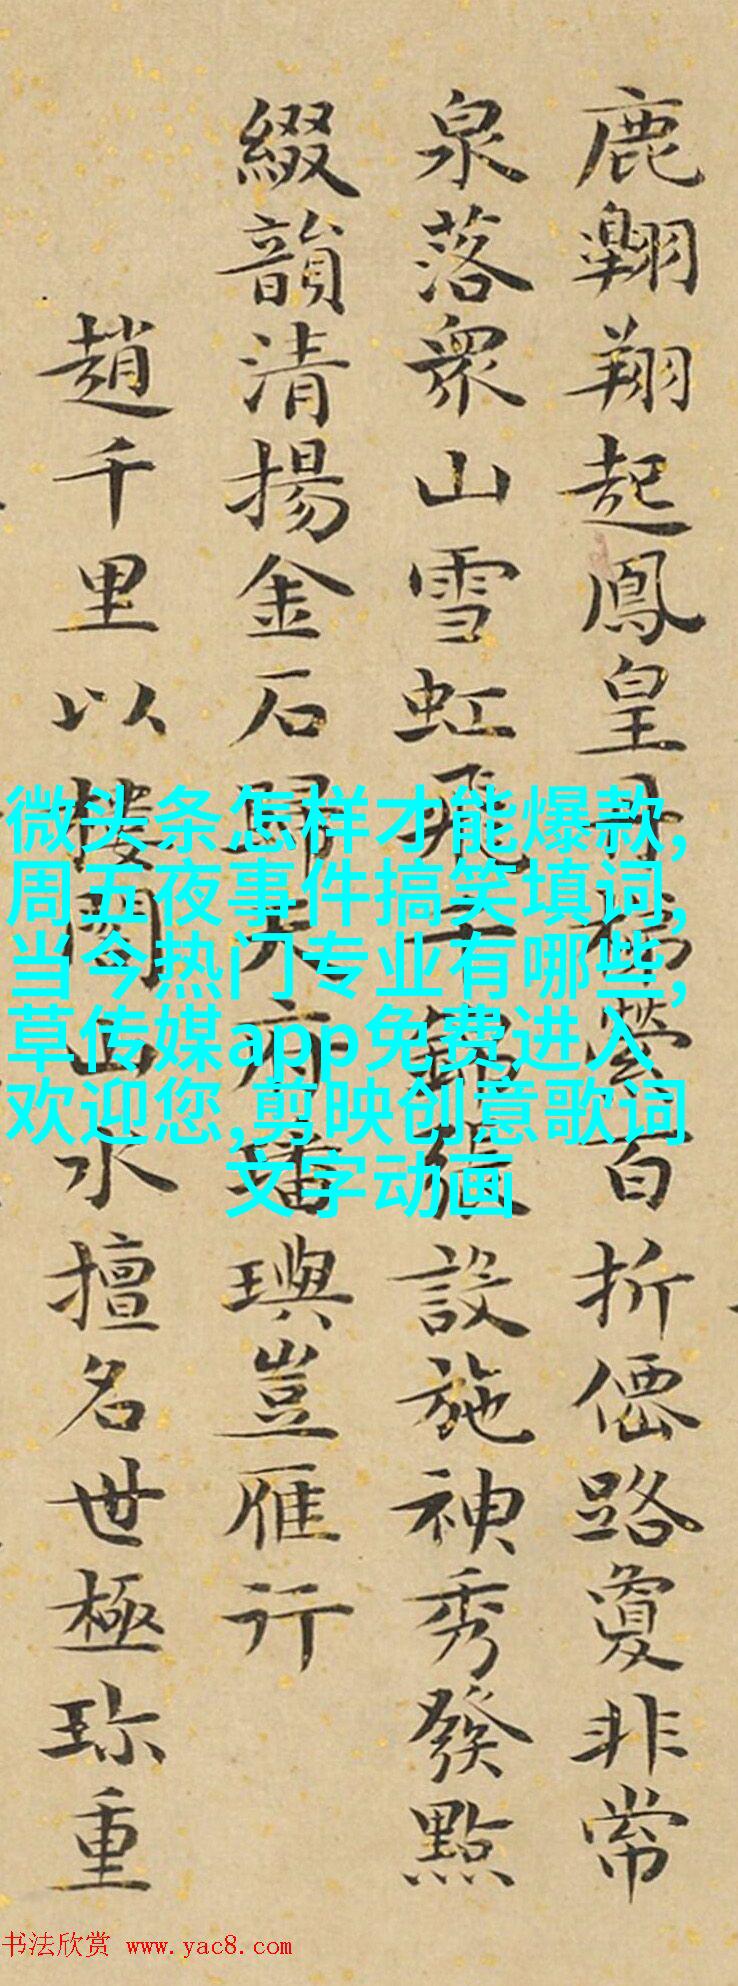 鹿翱翔起鳳皇丹梯縈百折僊路敻非常
泉落衆山雪虹飛千錦張設施神秀發點
綴韻清揚金石歸天府璠璵豈雁行
趙千里以樓閣山水擅名世極珎重
微头条怎样才能爆款,
周五夜事件搞笑填词,
当今热门专业有哪些,
草传媒app免费进入
欢迎您,剪映创意歌词
文字动画
书法欣赏 www.yac8.com